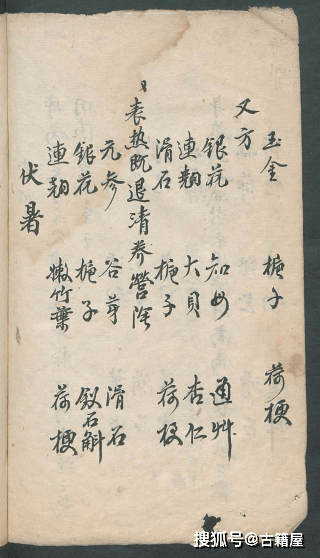 玉金 梔子 荷梗
又方
銀花 知母 通艸
連翹 大貝 杏仁
滑石 梔子 荷梗
表热既退清养營陰
元参 谷芽 滑石
銀花 梔子 釵石斛
連翹 嫩竹葉 荷梗
伏暑
搜狐号@古籍屋